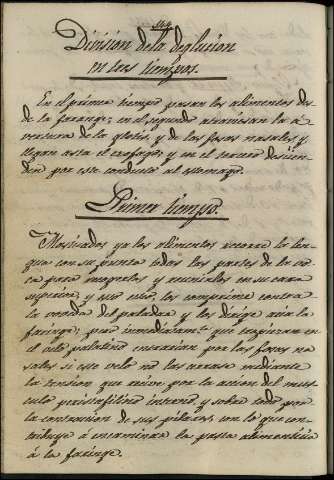 División de la deglucion
en tres tiempos.
En el primer tiempo pasan los alimentos des
de la farange; en el segundo atraviesan la a
vertura de la glotis, y de las fosas nasales y
llegan asta el exofago; y en el tercero descien
den por este conducto al estomago.
Primer tiempo.
Masticados ya los alimentos recorre la len
gua con su punta todas las partes de la vo
ca para y reunirlos en su cara
superior; y uso, los comprime contra
la voveda del paladar y los dirige acia la
faringe; pero inmediatam.te que tropiezan en
el velo palatino por las fosas na
sales si este velo no las mediante
la tension que recive por la accion del mus
culo peristafilino interno, y sobre todo por
la contraccion de sus pilares, con lo que con
tribuye á encaminar la pasta alimenticia
á la faringe.